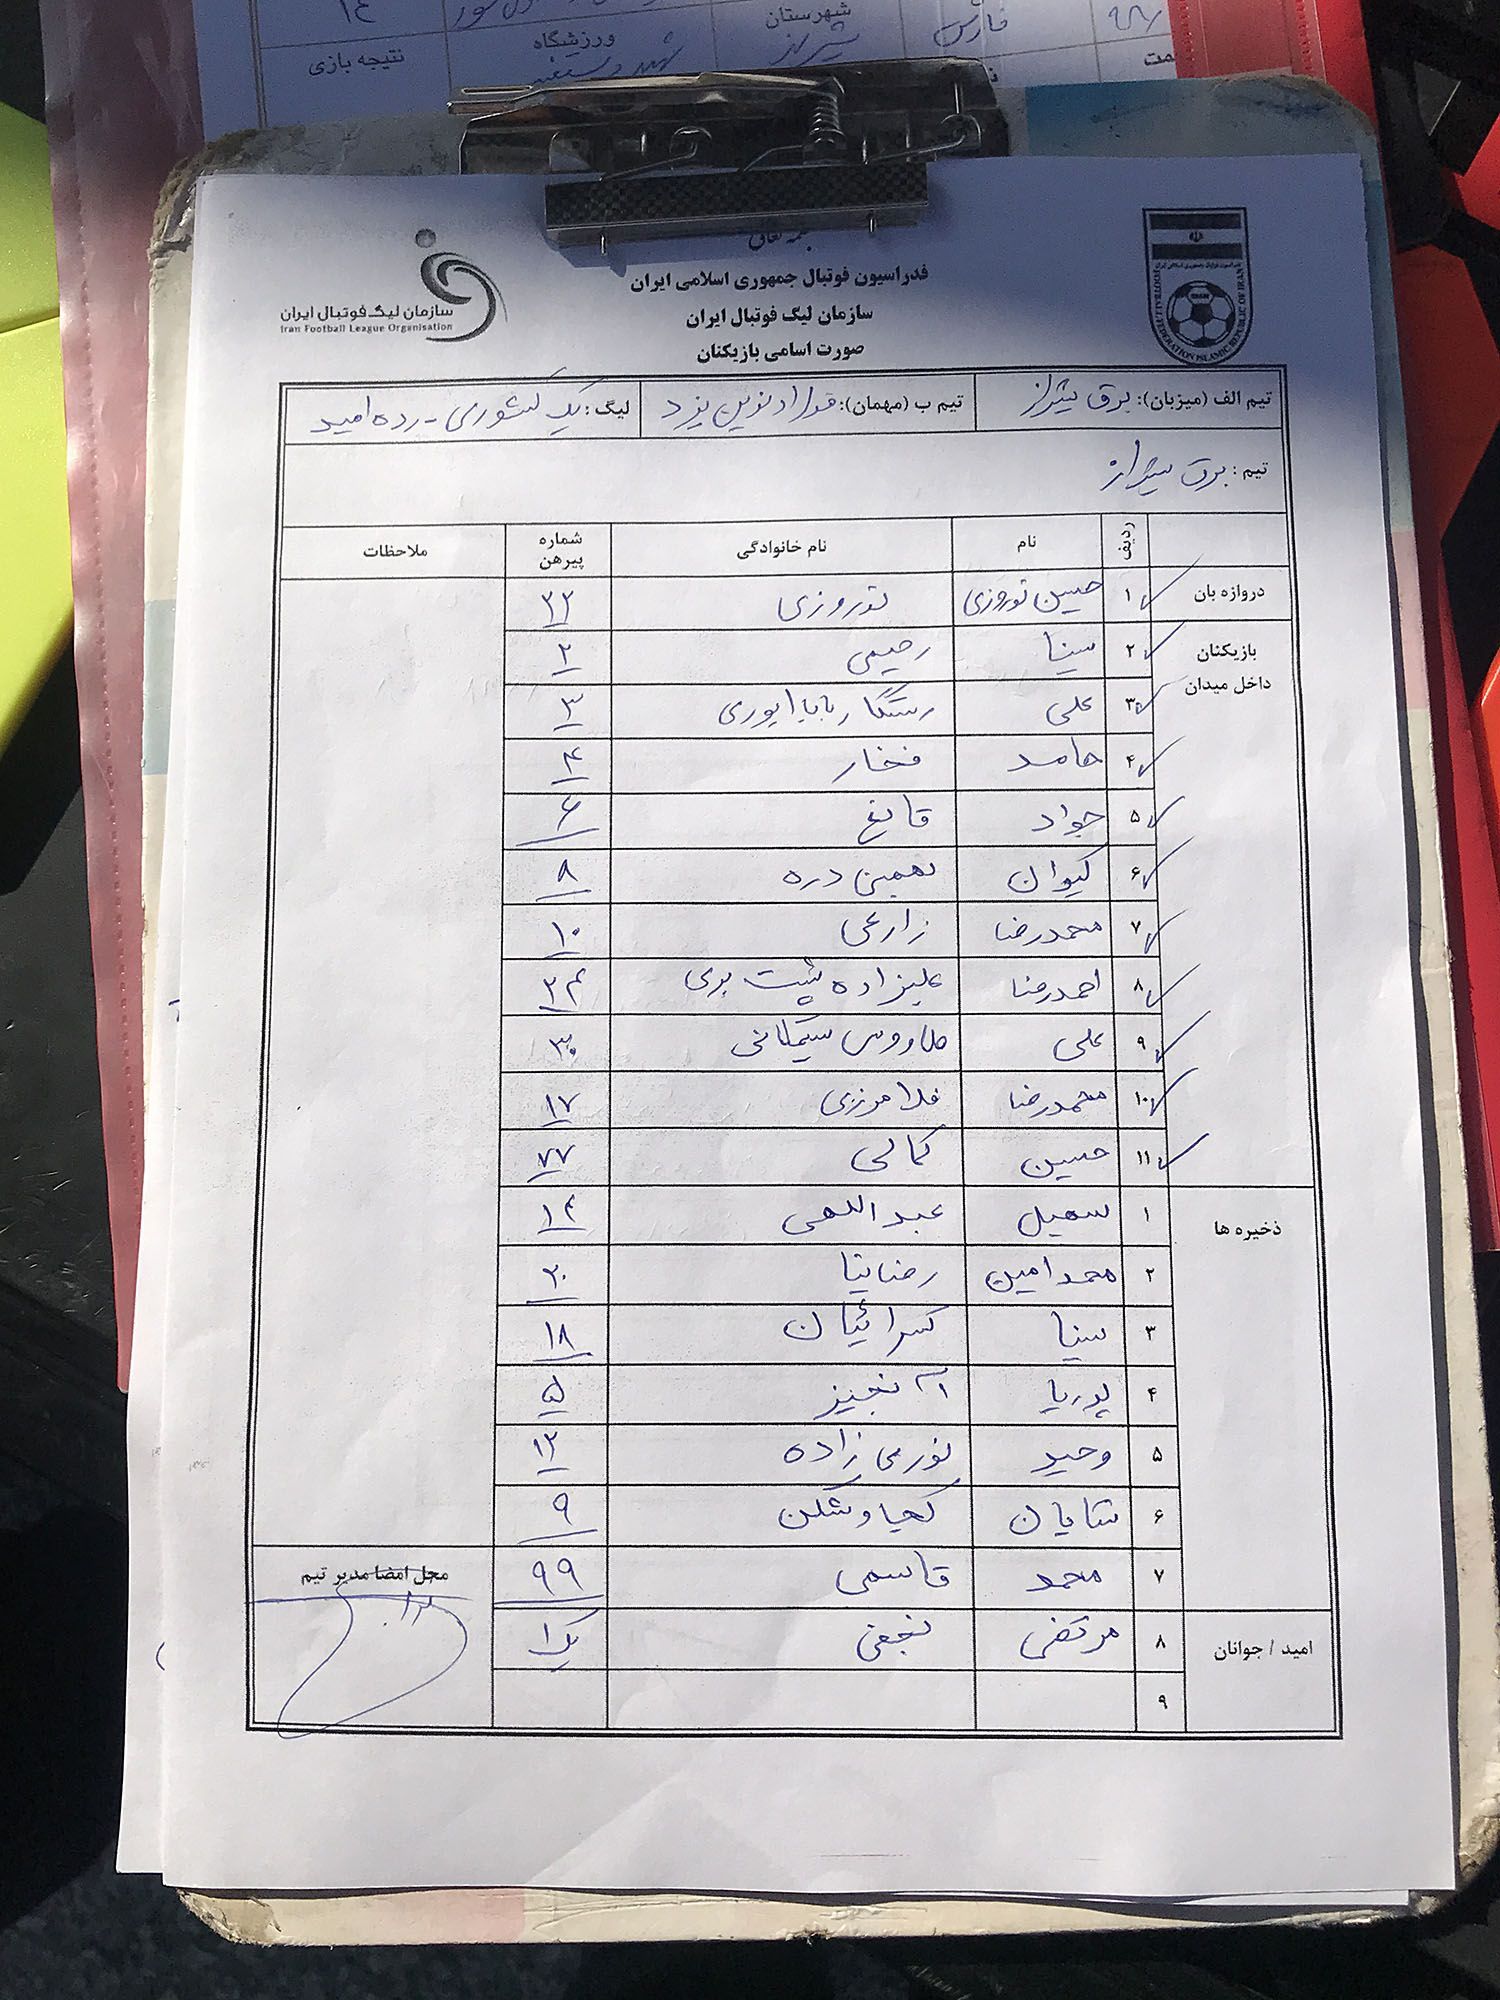 فارس
شهرستان
شیراز
ورزشگاه
نتیجه بازی
۱۴
سازمان لیگ فوتبال ایران
Iran Football League Organisation
FOOTBALL FEDERATION ISLAMIC REPUBLIC OF IRAN
فدراسیون فوتبال جمهوری اسلامی ایران
سازمان لیگ فوتبال ایران
صورت اسامی بازیکنان
تیم الف (میزبان): برق شیراز تیم ب (مهمان): فولاد نوین یزد لیگ: یک کشوری - رده امید
تیم : برق شیراز
ردیف نام نام خانوادگی شماره پیرهن ملاحظات
دروازه بان ۱ حسین نوروزی نوروزی ۳۳
بازیکنان داخل میدان ۲ سینا رحیمی ۲
۳ علی رستگار باباپوری ۳
۴ حامد فخار ۴
۵ جواد قانع ۶
۶ کیوان بهمئی دره ۸
۷ محمدرضا زارعی ۱۰
۸ احمدرضا علیزاده پشت بری ۲۴
۹ علی طاووس سیمکانی ۳۰
۱۰ محمدرضا فلامرزی ۱۷
۱۱ حسین کمالی ۷۷
ذخیره ها ۱ سهیل عبداللهی ۱۴
۲ محمد امین رضانیا ۲۰
۳ سینا کسرائیان ۱۸
۴ پوریا ۵
۵ وحید نورمی زاده ۱۲
۶ شایان ۹
۷ محمد قاسمی ۹۹
محل امضا مدیر تیم
امید / جوانان ۸ مرتضی نجفی یک ۱
۹